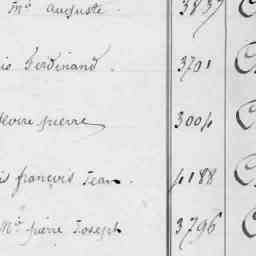 Me auguste. 3837
is ferdinand. 3701
pierre 3004
is françois Jean. 4188
Me pierre Joseph 3796